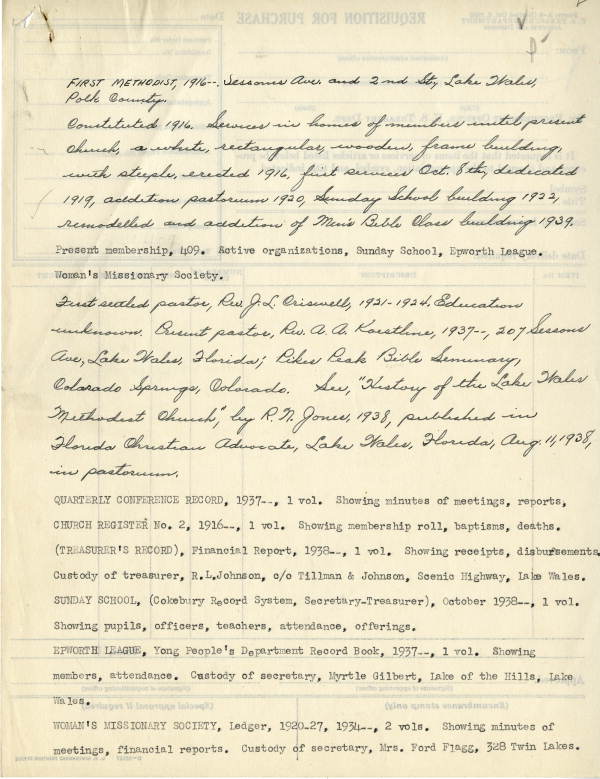 FIRST METHODIST, 1916--. Sessoms Ave. and 2nd St., Lake Wales,
Polk County.
Constituted 1916. Services in homes of members until present
church, a white, rectangular, wooden, frame building,
with steeple, erected 1916, first services Oct. 8th, dedicated
1919, addition pastorium 1920, Sunday School building 1922,
remodelled and addition of Men's Bible Class building 1939.
Present membership, 409. Active organizations, Sunday School, Epworth League.
Woman's Missionary Society.
First settled pastor, Rev. J. L. Criswell, 1921-1924. Education
unknown. Present pastor, Rev. A. A. Koestline, 1937--, 207 Sessoms
Ave, Lake Wales, Florida; Pikes Peak Bible Seminary,
Colorado Springs, Colorado. See, "History of the Lake Wales
Methodist Church", by R. N. Jones, 1938, published in
Florida Christian Advocate, Lake Wales, Florida, Aug. 11, 1938,
in pastorium.
QUARTERLY CONFERENCE RECORD, 1937--, 1 vol. Showing minutes of meetings, reports,
CHURCH REGISTER No. 2, 1916--, 1 vol. Showing membership roll, baptisms, deaths.
(TREASURER'S RECORD), Financial Report, 1938--, 1 vol. Showing receipts, disbursements.
Custody of treasurer, R.L.Johnson, c/o Tillman & Johnson, Scenic Highway, Lake Wales.
SUNDAY SCHOOL, (Cokebury Record System, Secretary-Treasurer), October 1938--, 1 vol.
Showing pupils, officers, teachers, attendance, offerings.
EPWORTH LEAGUE, Yong People's Department Record Book, 1937--, 1 vol. Showing
members, attendance. Custody of secretary, Myrtle Gilbert, Lake of the Hills, Lake
Wales.
WOMAN'S MISSIONARY SOCIETY, Ledger, 1920-27, 1934--, 2 vols. Showing minutes of
meetings, financial reports. Custody of secretary, Mrs. Ford Flagg, 328 Twin Lakes.